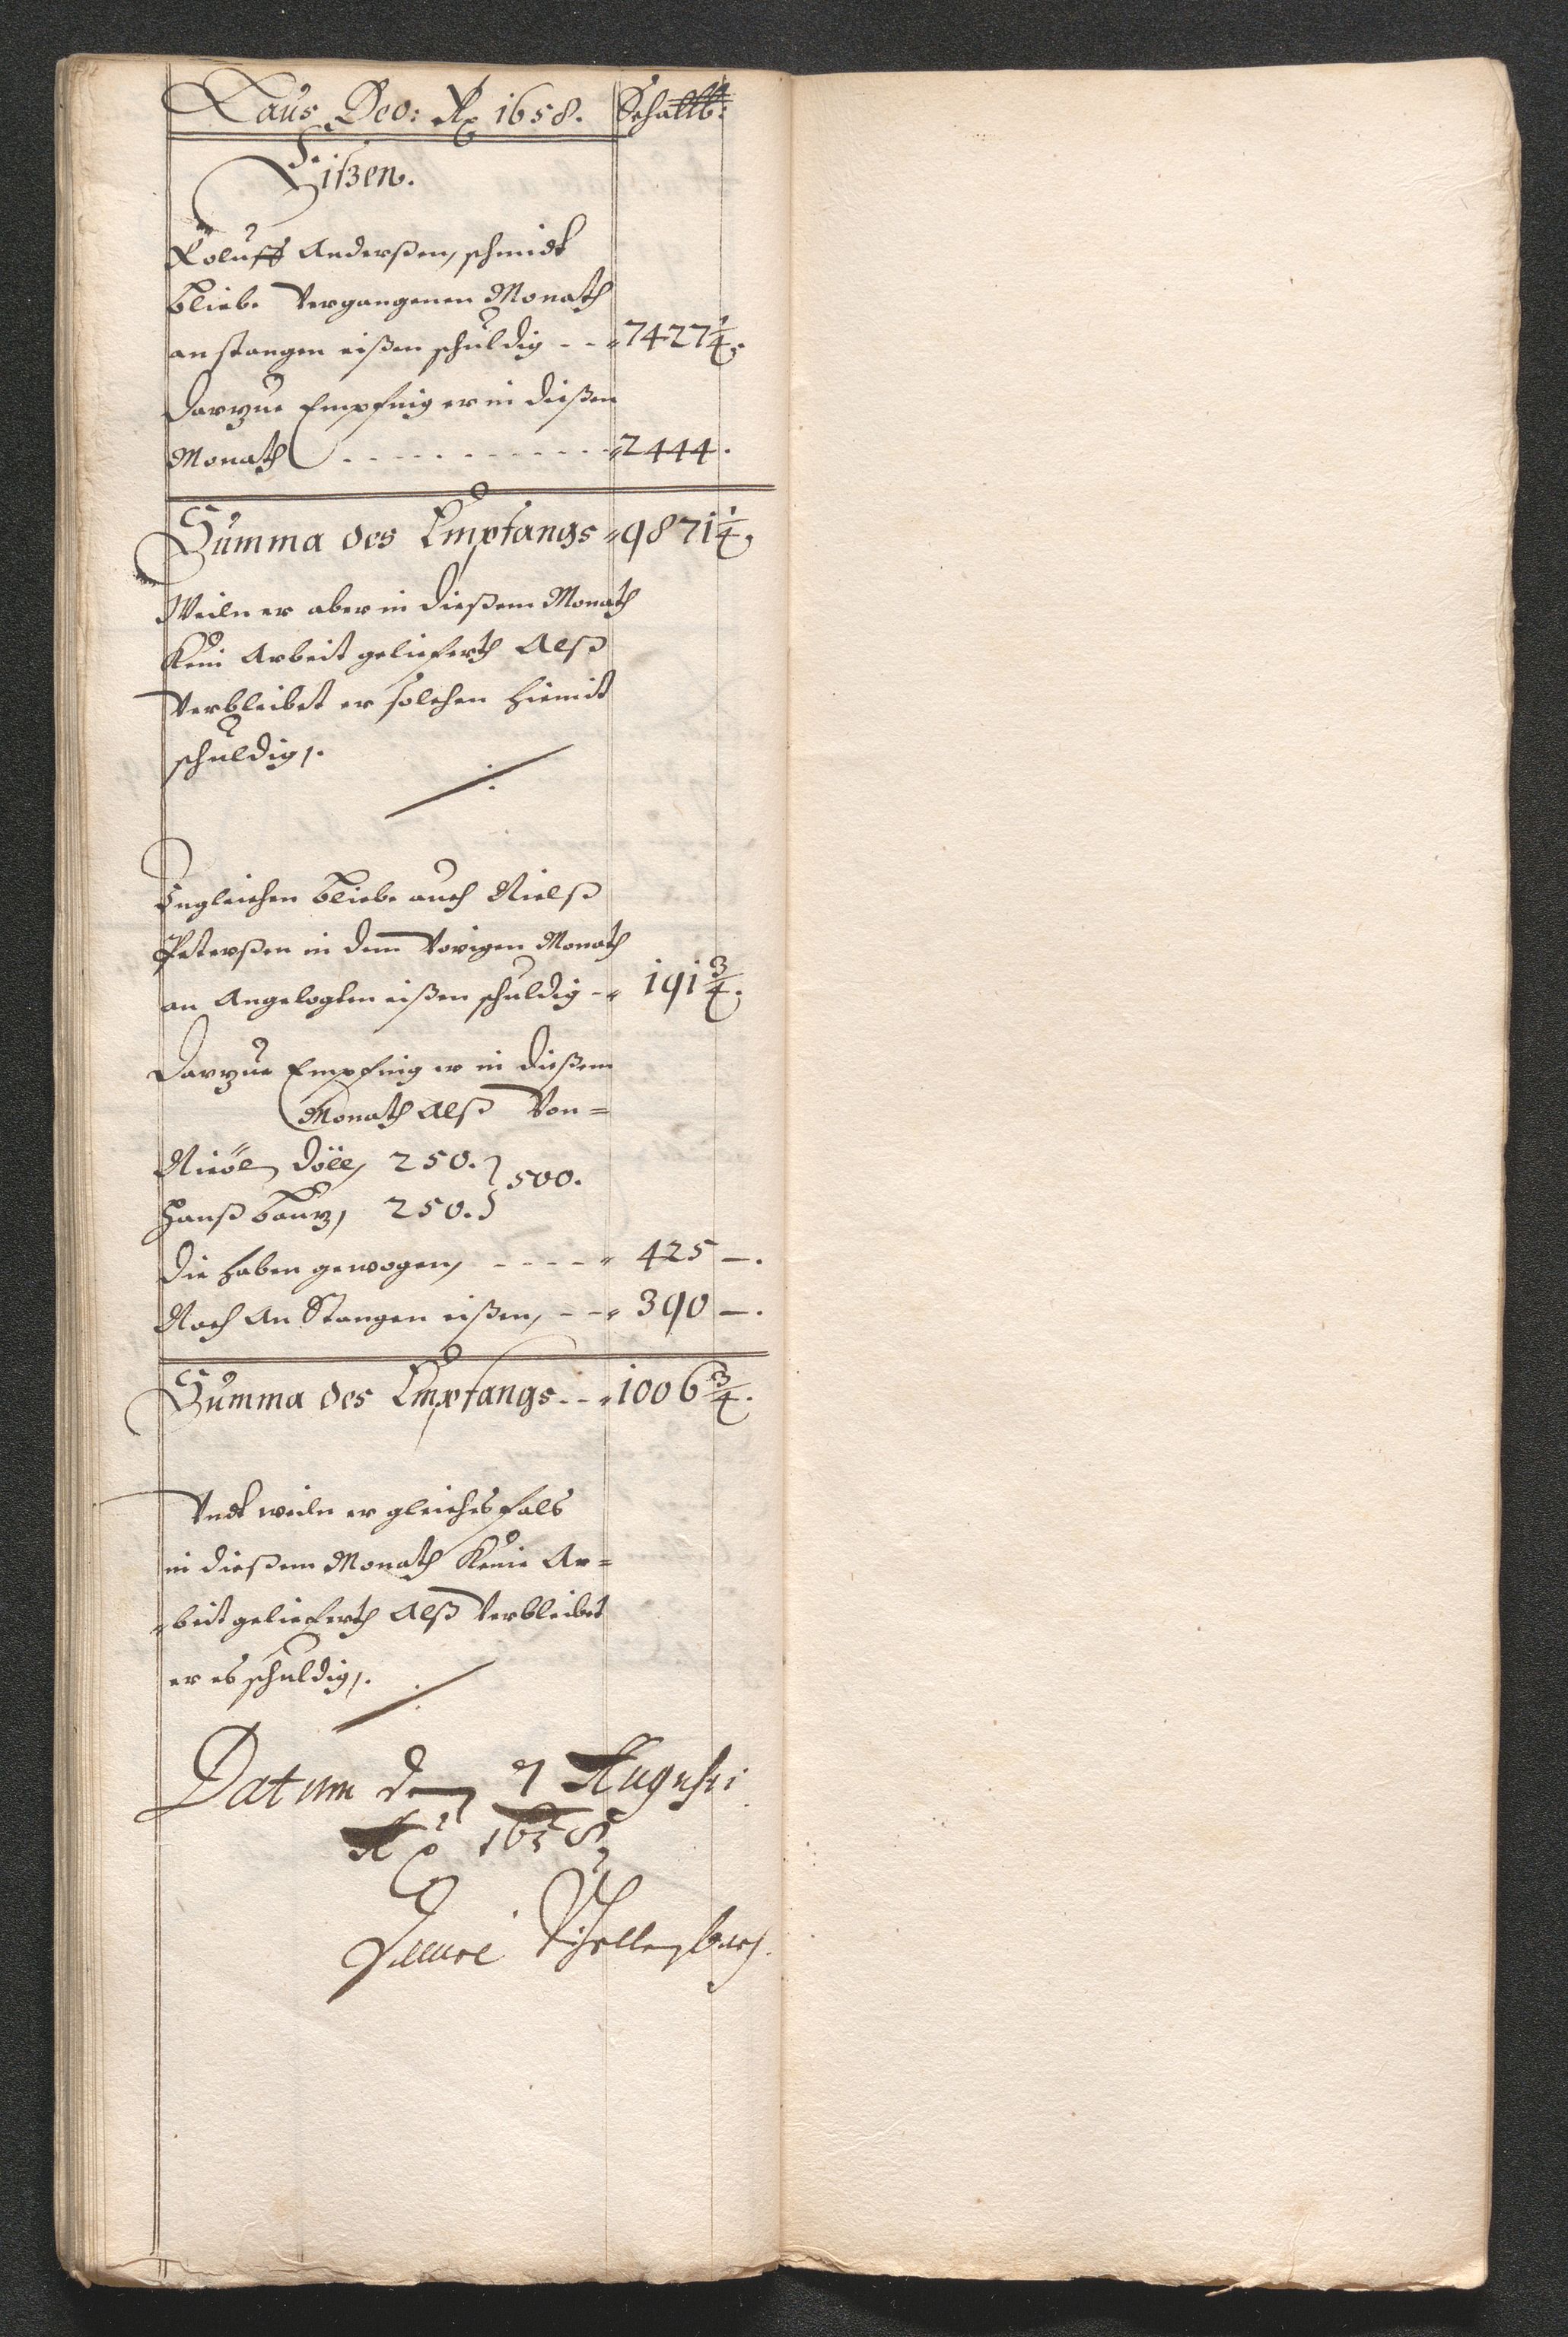 Laus Deo: Ao 1658. Schallb:
Eißen.
Roluff Anderßen, schmidt
bliebe Vergangenen Monath
an stangen eißen schuldig - - „ 7427 1/4.
Darzue Empfing er in dießen
Monath - - - - - - - - - - - „ 2444.
Summa des Empfangs „ 9871 1/4.
Weiln er aber in dießem Monath
Kein Arbeit gelieferth Alß
Verbleibet er solchen hiemit
schuldig /.
Ingleichen bliebe auch Nielß
Peterßen in dem Vorigen Monath
an Angelogten eißen schuldig - „ 191 3/4.
Darzue Empfing er in dießem
Monath Alß Von =
Nicöl Döll, 250. } 500.
Hanß baur, 250. }
Die haben gewogen, - - - - - „ 425 —.
Noch An Stangen eißen, - - „ 390 —.
Summa des Empfangs - - „ 1006 3/4.
Undt weiln er gleiches fals
in dießem Monath Keine Ar=
„beit gelieferth Alß Verbleibet
er es schuldig /.
Datum den 7 Augusti
Ao 1658